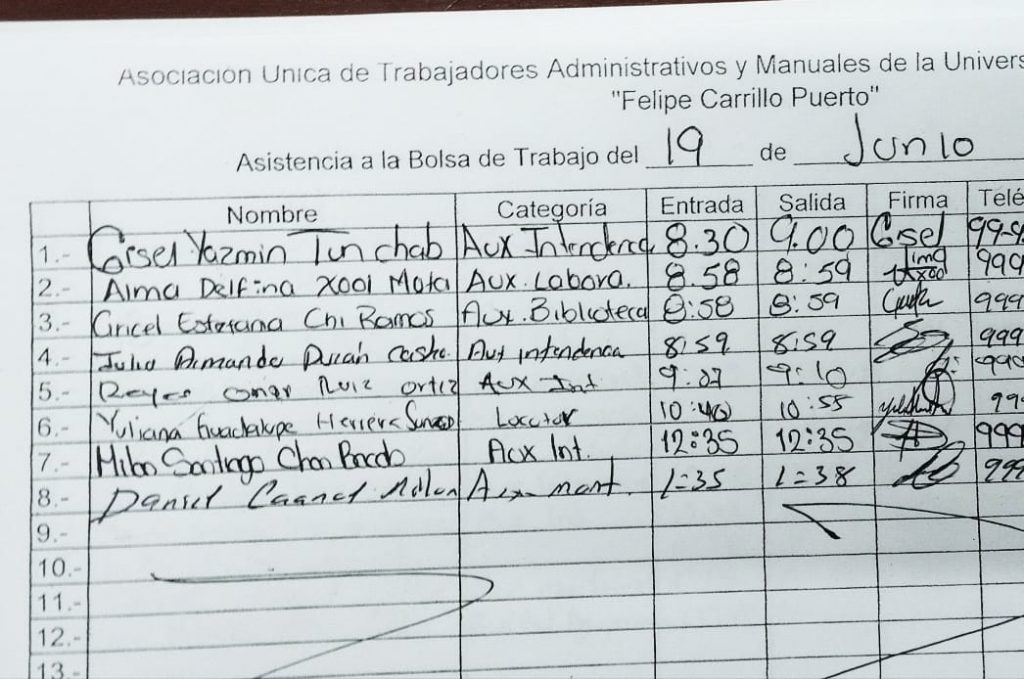 Asociación Única de Trabajadores Administrativos y Manuales de la Univers
"Felipe Carrillo Puerto"
Asistencia a la Bolsa de Trabajo del 19 de Junio
Nombre Categoría Entrada Salida Firma Telé
1.- Gisel Yazmin Tun chab Aux Intendenc 8.30 9.00 Gisel 99-9
2.- Alma Delfina Xool Mota Aux. Labora. 8.58 8:59 Xool 999
3.- Gricel Estefana Chi Ramos Aux. Biblioteca 8:58 8:59 999
4.- Julio Armando Ducán Castro. Aux intendencia 8:59 8:59 999
5.- Reyes Omar Ruiz Ortiz Aux Int 9:07 9:10 990
6.- Yuliana Guadalupe Herrera 10:40 10:55 99
7.- Santiago Chan Aux Int. 12:35 12:35 999
8.- Daniel Aux mant. 1:35 1:38 999
9.-
10.-
11.-
12.-
13.-